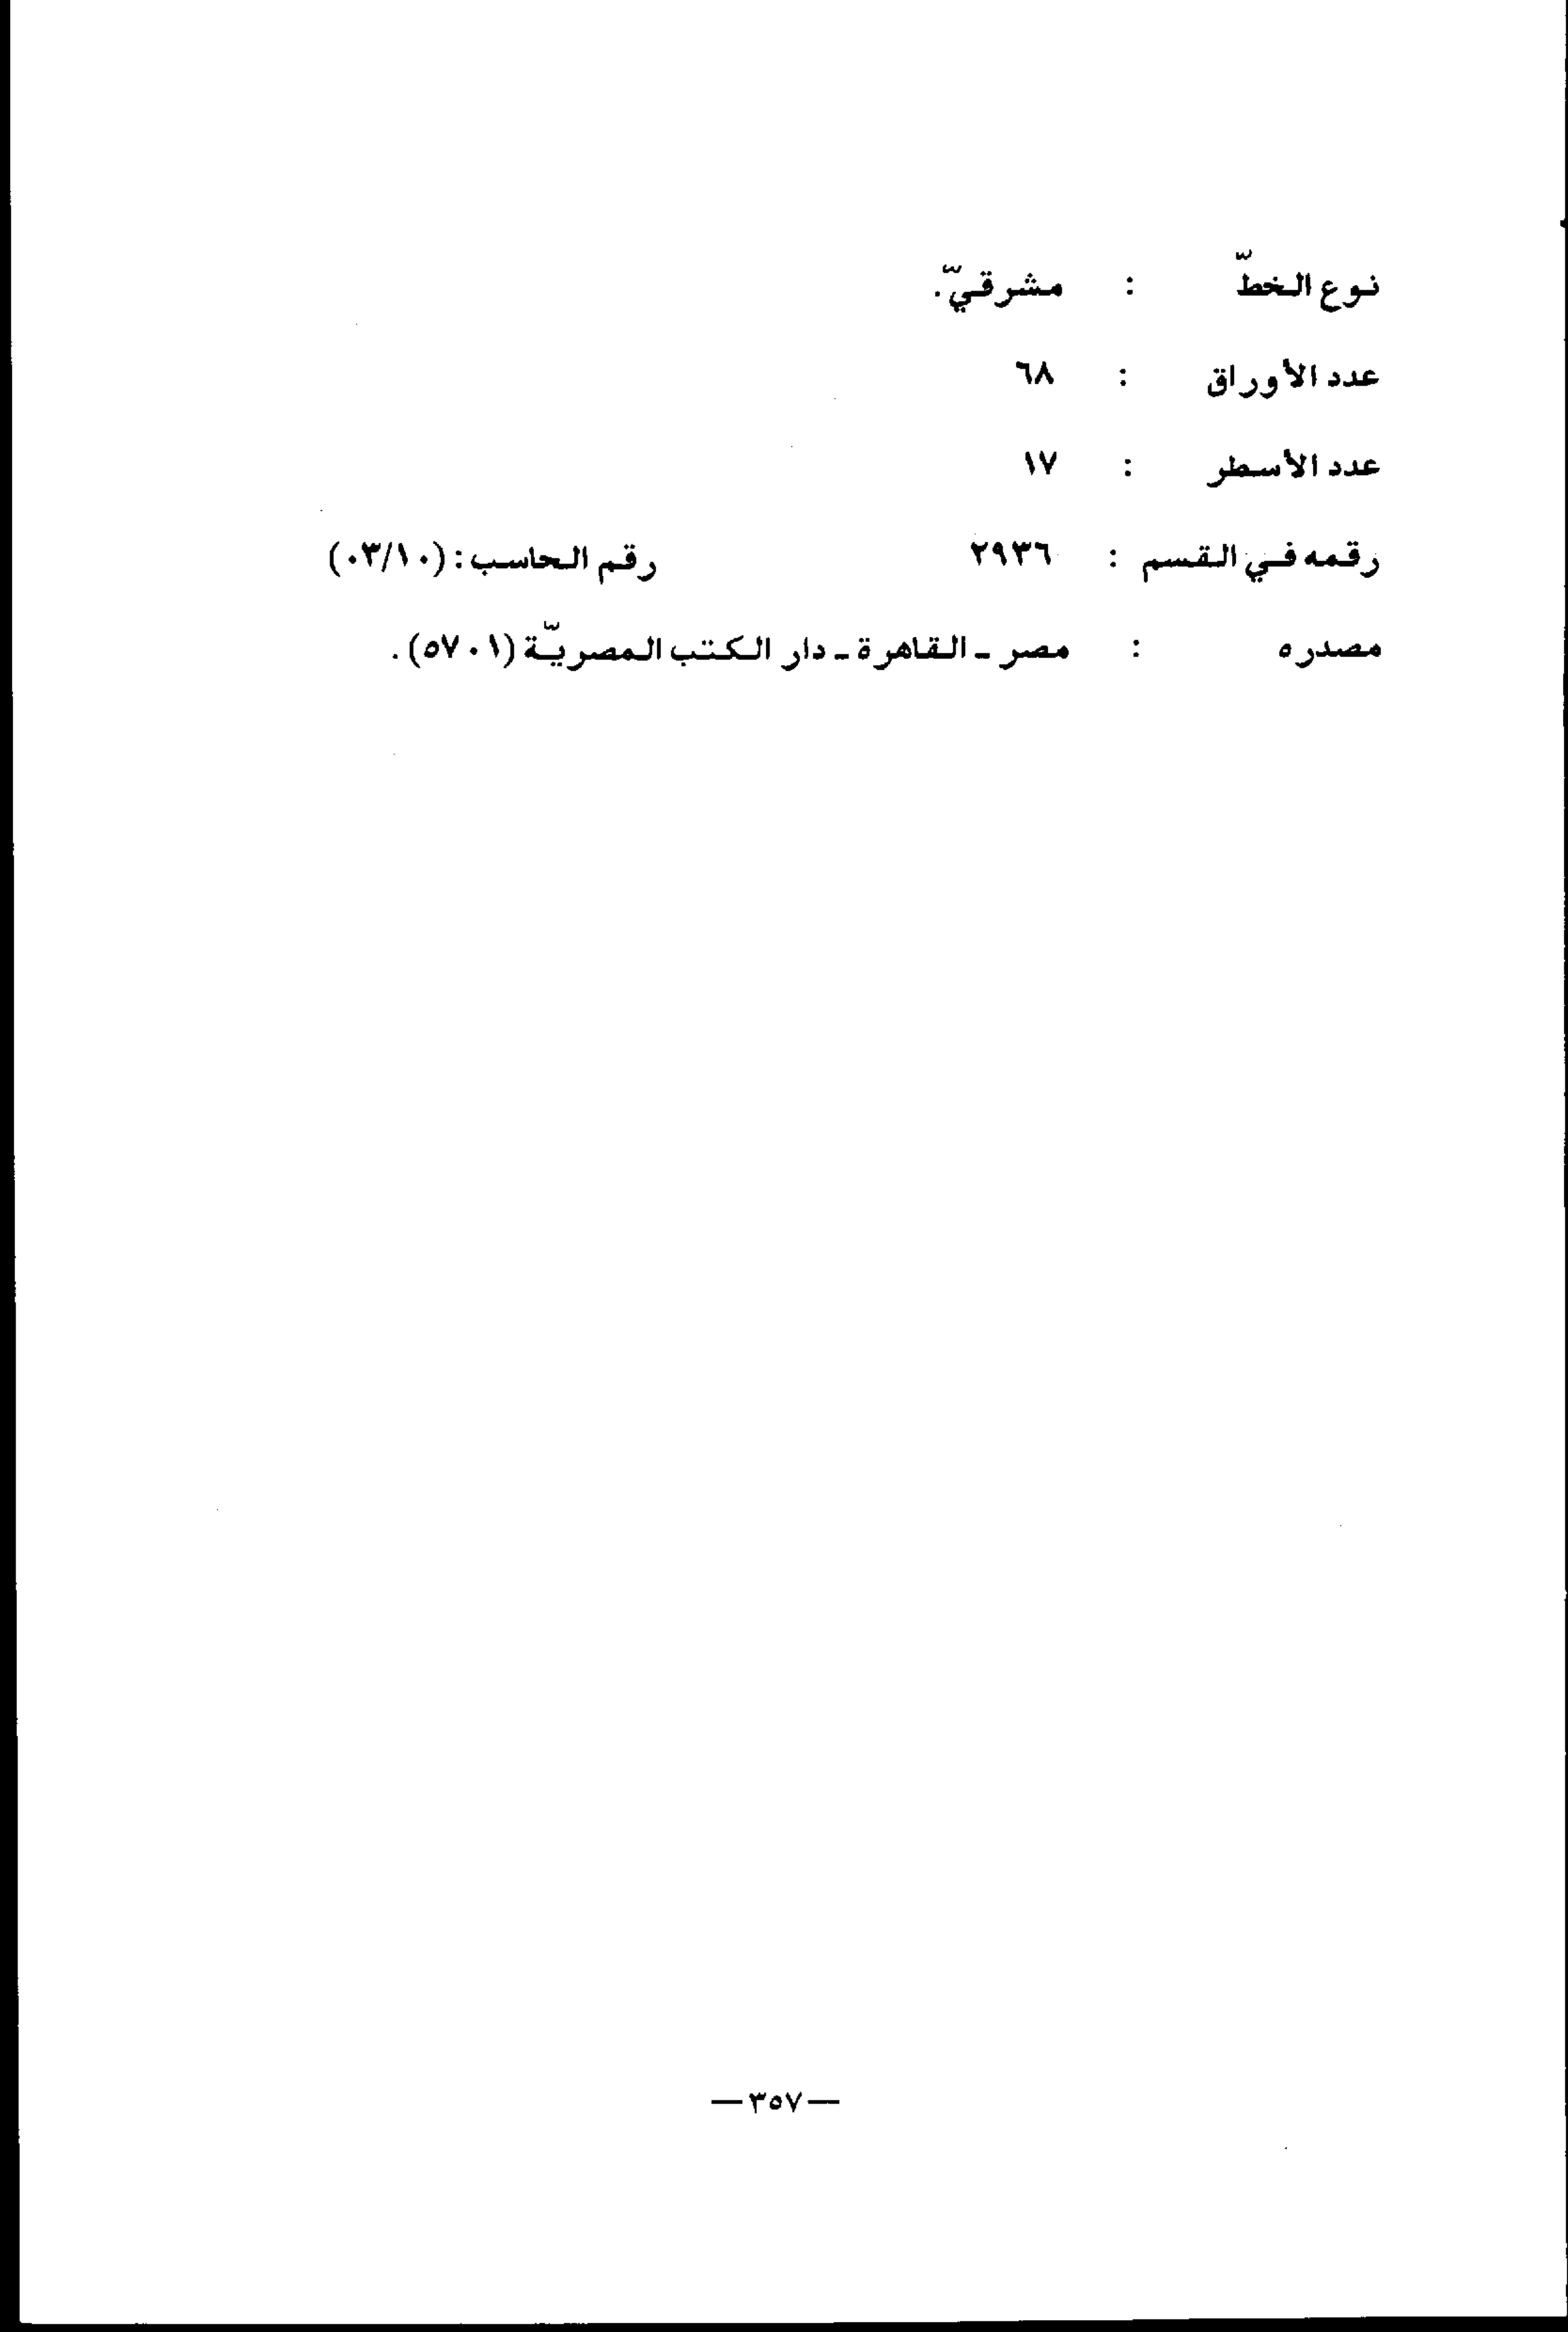 نوع الخطّ : مشرقيّ.
عدد الأوراق : ٦٨
عدد الأسطر : ١٧
رقمه في القسم : ٢٩٣٦ رقم الحاسب: (٠٣/١٠)
مصدره : مصر - القاهرة - دار الكتب المصريّة (٥٧٠١).
— ٣٥٧ —